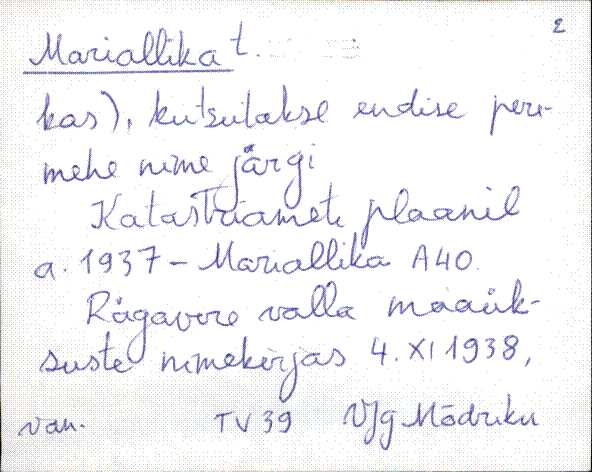 2
Mariallika t.
kas), kutsutakse endise pere-
mehe nime järgi
Katastriameti plaanil
a. 1937 – Mariallika A40.
Rägavere valla maaük-
suste nimekirjas 4. XI 1938,
van. TV 39 VJg Mõdriku